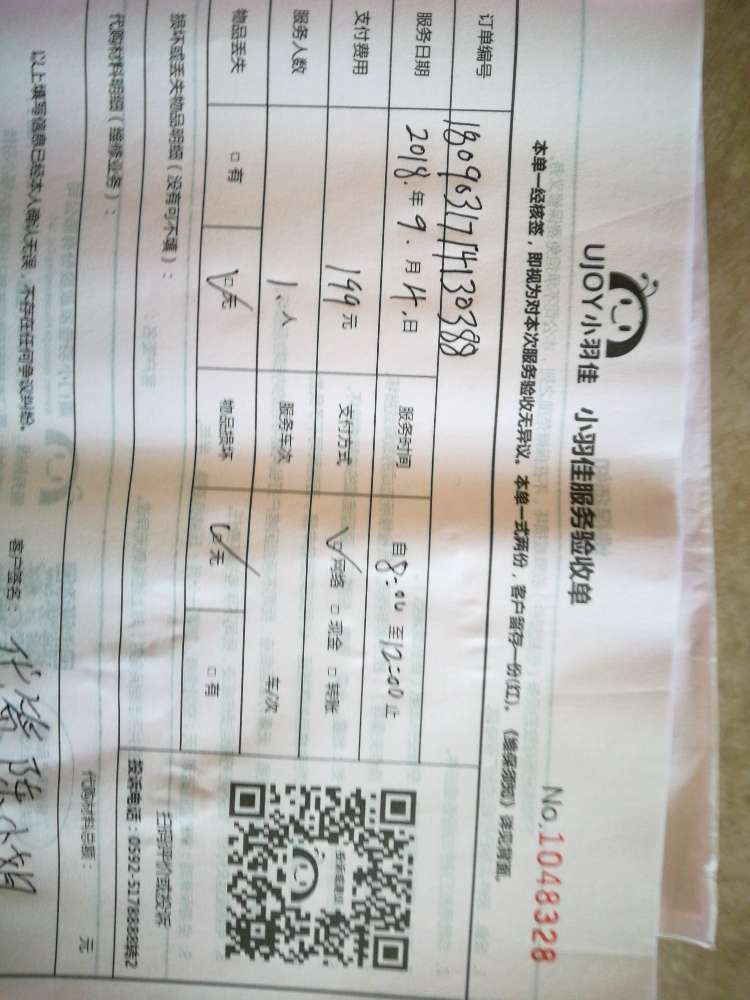 UJOY小羽佳 小羽佳服务验收单
No.10483​28
本单一经核签，即视为对本次服务验收无异议。本单一式两份，客户留存一份(红)。《缴保须知》详见背面。
订单编号 180903171413​0388
服务日期 2018.年9.月4.日 服务时间 自8:00至12:00止
支付费用 199元 支付方式 ☑网络 □现金 □转账
服务人数 1.人 服务车次 车/次
物品丢失 □有 ☑无 物品损坏 ☑无 □有
损坏或丢失物品明细（没有可不填）：
投诉或建议
扫码评价或投诉
投诉电话：0592-5178888转2
代购材料明细（维修业务）： 代购材料总额： 元
以上填写信息已经本人确认无误，不存在任何争议纠纷。 客户签名：代签